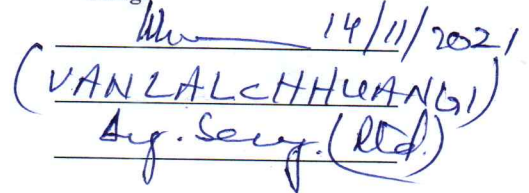 14/11/2021
(VANLALCHHUANGI)
Secy. (Rtd.)